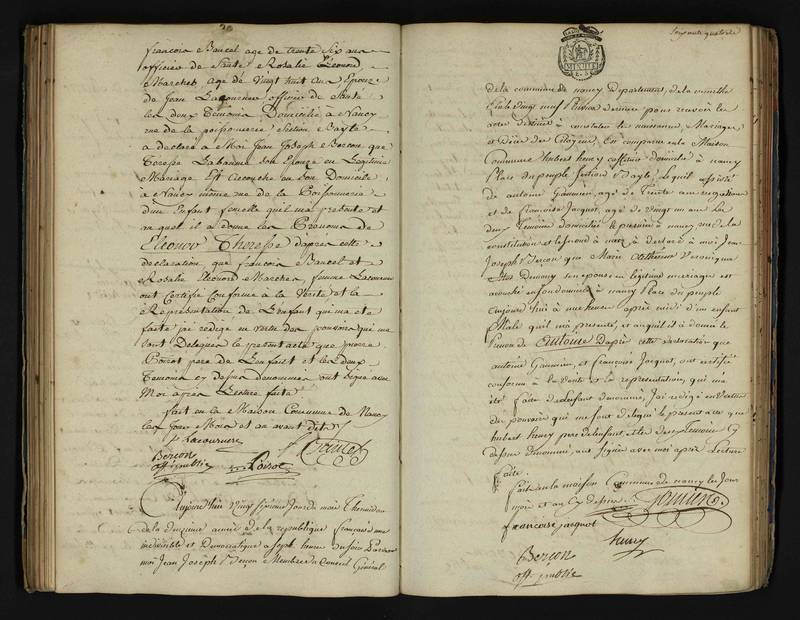 francois Baucel age de trente six ans
officier de Santé et Rosalie Eléonord
Marchet age de Vingt huit ans Epouze
de Jean Lacournere officier de Sante
les deux Temoins Domicilié à Nancy
rue de la poissonnerie Section Bayle
a déclaré a Moi Jean Joseph Berçon que
Therese Labanne Son Epouse en Legitime
Mariage Est Accouche en Son Domicile
a Nancy même rue de la Poissonnerie
d'un Enfant femelle qu'il m'a presenté et
au quel il a donné les Prenoms de
Eleonor Therese d'apres cette
declaration que francois Baucel et
Rosalie Eleonord Marchet, femme Lacournere
ont Certifié Conforme à la Verité et la
Representation de L'enfant qui m'a été
faite j'ai redigé en vertu des pouvoirs qui me
sont Delegués le present acte que pierre
Poirot pere de L'enfant et les deux
Temoins cy dessus denommés ont signé avec
Moi apres Lecture faite
fait en la Maison Commune de Nancy
les Jour Mois et an avant dit
Lacournere
Baucel
Berçon
off. public
Poirot
Aujourd'hui Vingt sixieme Jour du mois Thermidor
de la deuxieme année de la republique francaise une
indivisible et Democratique a sept heures du soir Pardevant
moi Jean Joseph Berçon Membre du Conseil Général
Soixante quatorze
de la commune de nancy Departement de la meurthe
Elu le Vingt neuf Pluviose dernier pour recevoir les
actes destinés à constater les naissances, Mariages
et Décès des Citoyens, Est comparu en la Maison
Commune hubert henry caffetier domicilié à nancy
Place du peuple section Bayle, Lequel assisté
de antoine Gaunien, agé de Trente ans
et de françoise Jacquot, agé de vingt un ans Les
deux Temoins domicilié le premier à nancy rue de la
constitution et la seconde à à déclaré à moi Jean
Joseph Berçon que Marie Catherine Veronique
Demouy son epouse en legitime mariage est
accouché en son domicile à nancy Place du peuple
aujourd'hui à une heure après midi d'un enfant
Male qu'il m'a presenté, et auquel il à donné le
Prenom de Antoine D'apres cette declaration que
antoine Gaunien, et françoise Jacquot, ont certifié
conforme à la verité et la representation, qui m'a
été faite de l'enfant denommé, J'ai redigé en Vertu
des pouvoirs qui me sont délégué le present acte que
hubert henry pere de l'enfant, et les deux Temoins cy
dessus denommés, ont signés avec moi après Lecture
faite.
faite en la maison Commune de nancy les Jour
mois et an cy dessus
françoise jacquot
henry
Berçon
off. public